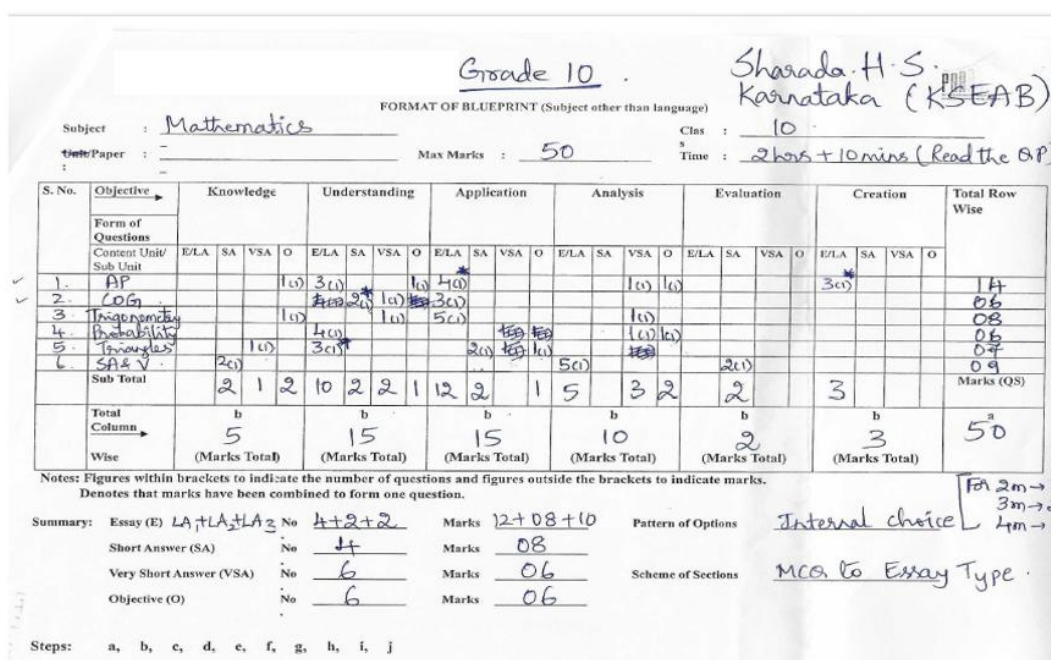 Grade 10 .
Sharada. H. S.
Karnataka (KSEAB)
FORMAT OF BLUEPRINT (Subject other than language)
Subject : Mathematics Clas s : 10
Unit/Paper : Max Marks : 50 Time : 2hrs + 10mins (Read the QP)
S. No. Objective Knowledge Understanding Application Analysis Evaluation Creation Total Row Wise
Form of Questions
Content Unit/ Sub Unit E/LA SA VSA O E/LA SA VSA O E/LA SA VSA O E/LA SA VSA O E/LA SA VSA O E/LA SA VSA O
1. AP 1(1) 3(1) 1(1) 4(1)* 1(1) 3(1)* 14
2. COG 2(1)* 1(1) 3(1) 06
3. Trigonometry 1(1) 1(1) 5(1) 1(1) 08
4. Probability 4(1) 1(1) 1(1) 06
5. Triangles 1(1) 3(1)* 2(1) 1(1) 07
6. SA & V. 2(1) 5(1) 2(1) 09
Sub Total 2 1 2 10 2 2 1 12 2 1 5 3 2 2 3 Marks (QS)
Total Column Wise b b b b b b a
5 15 15 10 2 3 50
(Marks Total) (Marks Total) (Marks Total) (Marks Total) (Marks Total) (Marks Total)
Notes: Figures within brackets to indicate the number of questions and figures outside the brackets to indicate marks.
Denotes that marks have been combined to form one question.
For 2m→
3m→
4m→
Summary: Essay (E) LA1+LA2+LA3 No 4+2+2 Marks 12+08+10 Pattern of Options Internal choice
Short Answer (SA) No 4 Marks 08
Very Short Answer (VSA) No 6 Marks 06 Scheme of Sections MCQ to Essay Type .
Objective (O) No 6 Marks 06
Steps: a, b, c, d, e, f, g, h, i, j